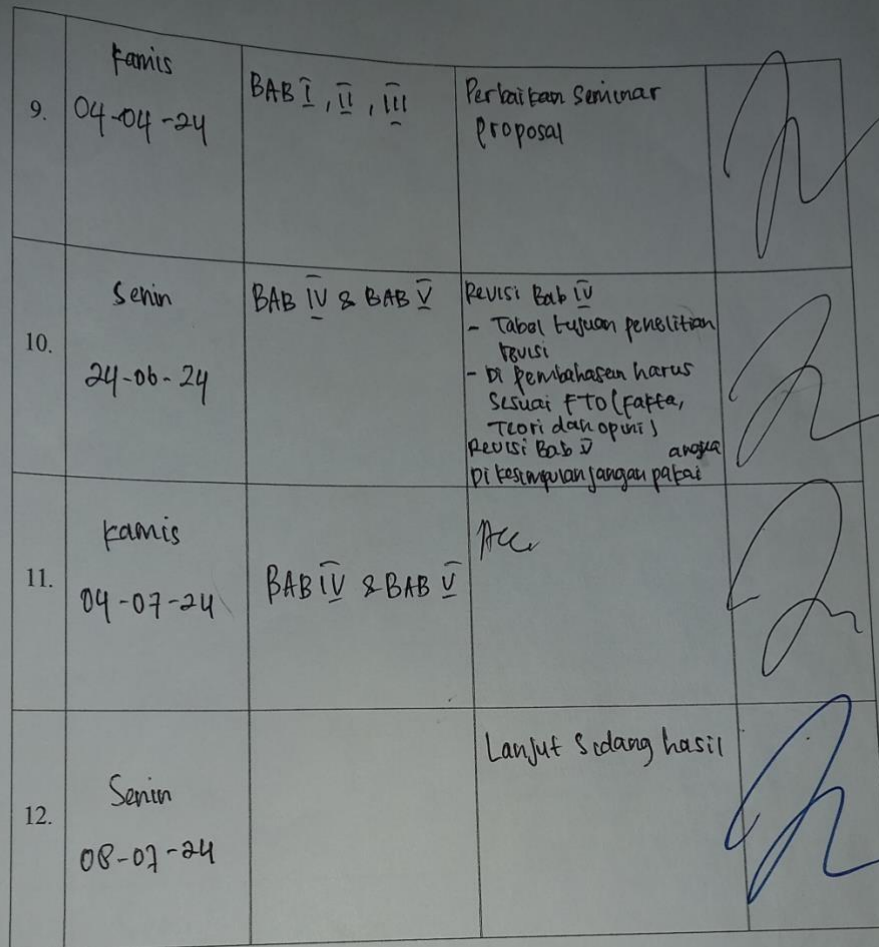 9.
Kamis
04-04-24
BAB I, II, III
Perbaikan Seminar
proposal
10.
Senin
24-06-24
BAB IV & BAB V
Revisi Bab IV
- Tabel tujuan penelitian
revisi
- Di pembahasan harus
Sesuai FTO (fakta,
Teori dan opini)
Revisi Bab V
angka
Di kesimpulan jangan pakai
11.
Kamis
04-07-24
BAB IV & BAB V
Acc
12.
Senin
08-07-24
Lanjut Sidang hasil